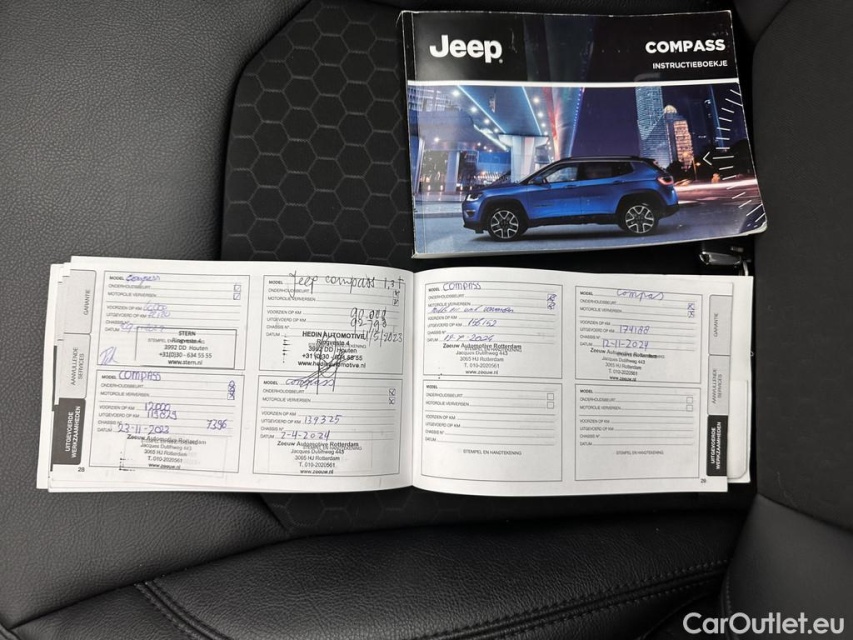 Jeep
COMPASS
INSTRUCTIEBOEKJE
GARANTIE
AANVULLENDE SERVICES
UITGEVOERDE WERKZAAMHEDEN
MODEL Compass
ONDERHOUDSBEURT
MOTOROLIE VERVERSEN
VOORZIEN OP KM
UITGEVOERD OP KM
CHASSIS N°
DATUM
STERN
Ringveste 4
3992 DD Houten
+31(0)30 - 634 55 55
www.stern.nl
MODEL Jeep compass 1,3 T
ONDERHOUDSBEURT
MOTOROLIE VERVERSEN
VOORZIEN OP KM 90.000
UITGEVOERD OP KM 92.798
CHASSIS N°
DATUM /5/2023
HEDIN AUTOMOTIVE
Ringveste 4
3992 DD Houten
+31(0)30 - 634 55 55
www.hedinautomotive.nl
MODEL COMPASS
ONDERHOUDSBEURT
MOTOROLIE VERVERSEN
VOORZIEN OP KM 12000
UITGEVOERD OP KM 113829
CHASSIS N° 7396
DATUM 23-11-2023
Zeeuw Automotive Rotterdam
Jacques Dutilhweg 443
3065 HJ Rotterdam
T. 010-2020561
www.zeeuw.nl
28
MODEL compass
ONDERHOUDSBEURT
MOTOROLIE VERVERSEN
VOORZIEN OP KM
UITGEVOERD OP KM 139325
CHASSIS N°
DATUM 2-4-2024
Zeeuw Automotive Rotterdam
Jacques Dutilhweg 443
3065 HJ Rotterdam
T. 010-2020561
www.zeeuw.nl
MODEL Compass
ONDERHOUDSBEURT
MOTOROLIE VERVERSEN
VOORZIEN OP KM
UITGEVOERD OP KM 156152
CHASSIS N°
DATUM
Zeeuw Automotive Rotterdam
Jacques Dutilhweg 443
3065 HJ Rotterdam
T. 010-2020561
www.zeeuw.nl
MODEL Compas
ONDERHOUDSBEURT
MOTOROLIE VERVERSEN
VOORZIEN OP KM
UITGEVOERD OP KM 174188
CHASSIS N°
DATUM 12-11-2024
Zeeuw Automotive Rotterdam
Jacques Dutilhweg 443
3065 HJ Rotterdam
T. 010-2020561
www.zeeuw.nl
MODEL
ONDERHOUDSBEURT
MOTOROLIE VERVERSEN
VOORZIEN OP KM
UITGEVOERD OP KM
CHASSIS N°
DATUM
STEMPEL EN HANDTEKENING
MODEL
ONDERHOUDSBEURT
MOTOROLIE VERVERSEN
VOORZIEN OP KM
UITGEVOERD OP KM
CHASSIS N°
DATUM
STEMPEL EN HANDTEKENING
GARANTIE
AANVULLENDE SERVICES
UITGEVOERDE WERKZAAMHEDEN
CarOutlet.eu